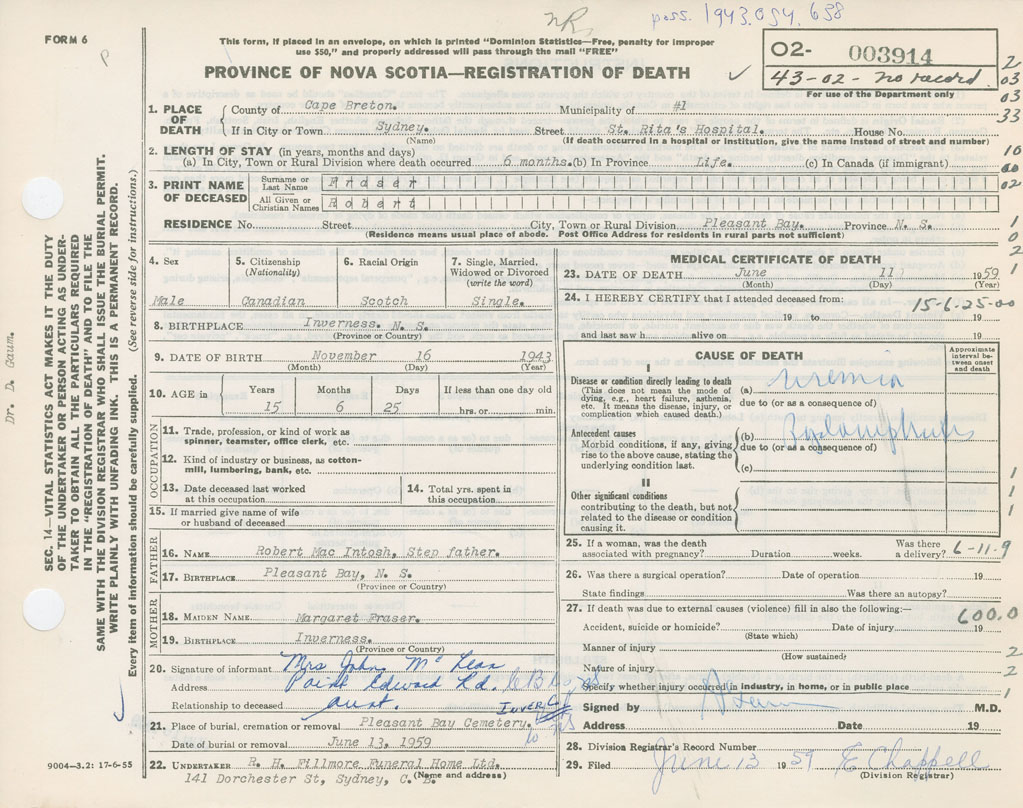 nR poss. 1943.054.638
FORM 6
P
This form, if placed in an envelope, on which is printed "Dominion Statistics—Free, penalty for improper
use $50," and properly addressed will pass through the mail "FREE"
PROVINCE OF NOVA SCOTIA—REGISTRATION OF DEATH ✓
02- 003914
43-02 - no record
For use of the Department only
2
03
33
10
00
02
1
0
2
1
1. PLACE OF DEATH
County of Cape Breton. Municipality of #1
If in City or Town Sydney. Street St. Rita's Hospital. House No.
(Name) (If death occurred in a hospital or institution, give the name instead of street and number)
2. LENGTH OF STAY (in years, months and days)
(a) In City, Town or Rural Division where death occurred 6 months. (b) In Province Life. (c) In Canada (if immigrant)
3. PRINT NAME OF DECEASED
Surname or Last Name Fraser
All Given or Christian Names Robert
RESIDENCE No. Street City, Town or Rural Division Pleasant Bay. Province N. S.
(Residence means usual place of abode. Post Office Address for residents in rural parts not sufficient)
4. Sex
Male
5. Citizenship
(Nationality)
Canadian
6. Racial Origin
Scotch
7. Single, Married,
Widowed or Divorced
(write the word)
Single.
8. BIRTHPLACE Inverness. N. S.
(Province or Country)
9. DATE OF BIRTH November 16 1943
(Month) (Day) (Year)
10. AGE in
Years Months Days If less than one day old
15 6 25 hrs. or min.
OCCUPATION
11. Trade, profession, or kind of work as
spinner, teamster, office clerk, etc.
12. Kind of industry or business, as cotton-
mill, lumbering, bank, etc.
13. Date deceased last worked
at this occupation
14. Total yrs. spent in
this occupation
15. If married give name of wife
or husband of deceased
FATHER
16. NAME Robert Mac Intosh, Step father.
17. BIRTHPLACE Pleasant Bay, N. S.
(Province or Country)
MOTHER
18. MAIDEN NAME Margaret Fraser.
19. BIRTHPLACE Inverness.
(Province or Country)
20. Signature of informant Mrs John Mc Lean
Address Point Edward Rd. C B
Relationship to deceased aunt.
INVER Co
21. Place of burial, cremation or removal Pleasant Bay Cemetery.
Date of burial or removal June 13, 1959
22. UNDERTAKER R. H. Fillmore Funeral Home Ltd.
141 Dorchester St, Sydney, C. B.
(Name and address)
MEDICAL CERTIFICATE OF DEATH
23. DATE OF DEATH June 11 1959
(Month) (Day) (Year)
24. I HEREBY CERTIFY that I attended deceased from:
15-6-25-00
19 to 19
and last saw h alive on 19
CAUSE OF DEATH
Approximate
interval be-
tween onset
and death
I
Disease or condition directly leading to death
(This does not mean the mode of
dying, e.g., heart failure, asthenia,
etc. It means the disease, injury, or
complication which caused death.)
(a) uremia
due to (or as a consequence of)
Antecedent causes
Morbid conditions, if any, giving
rise to the above cause, stating the
underlying condition last.
(b)
due to (or as a consequence of)
(c)
II
Other significant conditions
contributing to the death, but not
related to the disease or condition
causing it.
1
1
1
25. If a woman, was the death Was there
associated with pregnancy? Duration weeks. a delivery? 6-11-9
26. Was there a surgical operation? Date of operation 19
State findings Was there an autopsy?
27. If death was due to external causes (violence) fill in also the following:— 600.0
Accident, suicide or homicide? Date of injury 19
(State which)
Manner of injury 2
(How sustained)
Nature of injury 2
Specify whether injury occurred in industry, in home, or in public place 1
Signed by M.D.
Address Date 19
28. Division Registrar's Record Number
29. Filed June 13 1959 E Chappell
(Division Registrar)
SEC. 14—VITAL STATISTICS ACT MAKES IT THE DUTY
OF THE UNDERTAKER OR PERSON ACTING AS UNDER-
TAKER TO OBTAIN ALL THE PARTICULARS REQUIRED
IN THE "REGISTRATION OF DEATH" AND TO FILE THE
SAME WITH THE DIVISION REGISTRAR WHO SHALL ISSUE THE BURIAL PERMIT.
WRITE PLAINLY WITH UNFADING INK. THIS IS A PERMANENT RECORD.
Every item of information should be carefully supplied. (See reverse side for instructions.)
Dr. D. Gaum.
9004—3.2: 17-6-55